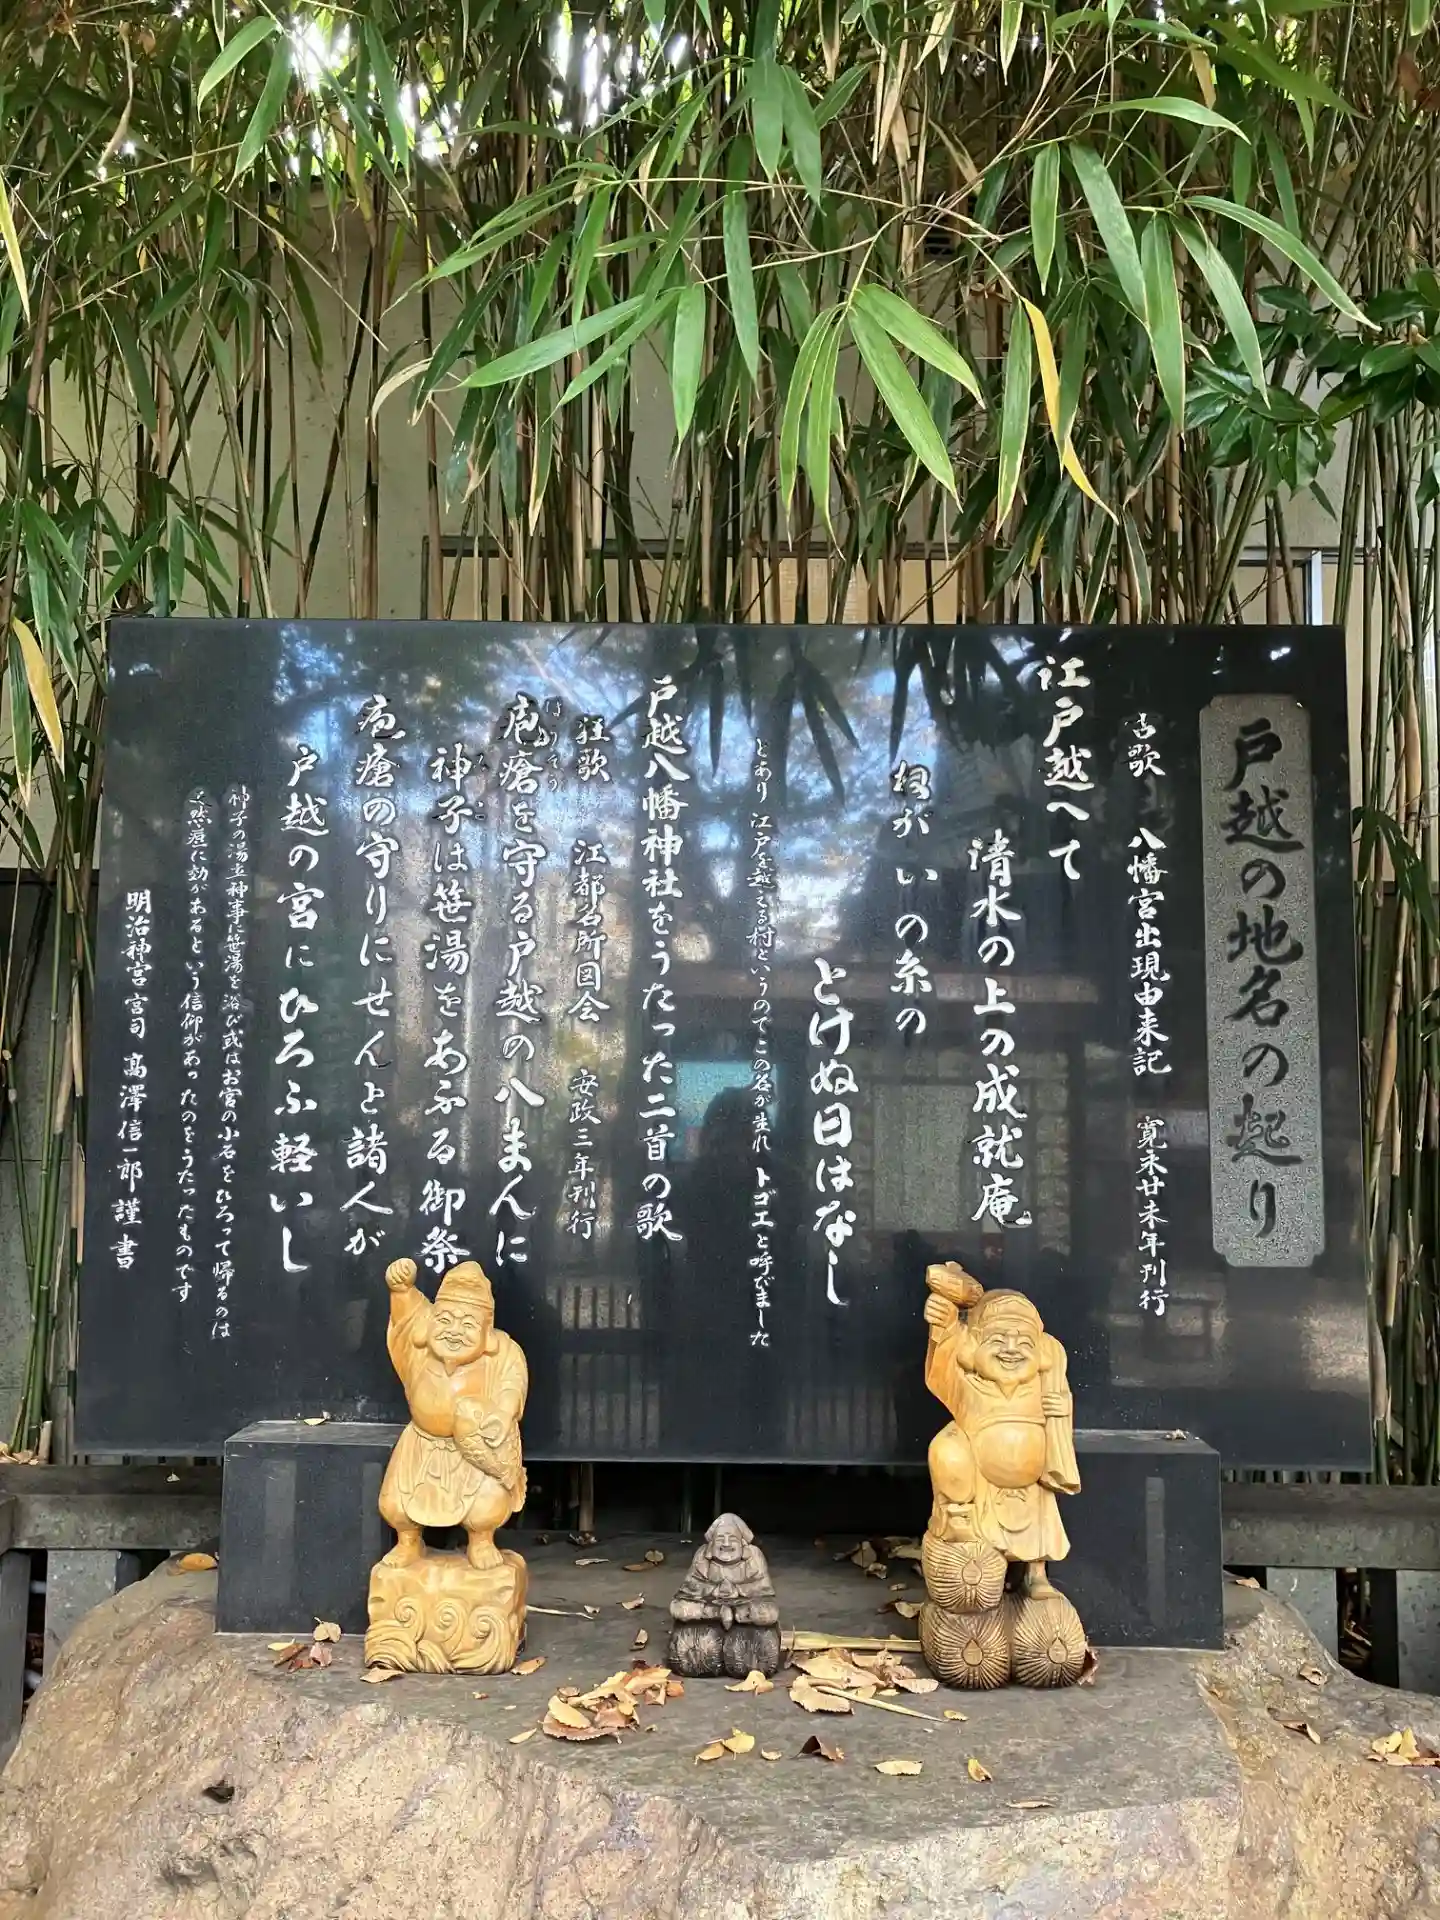 戸越の地名の起り
古歌 八幡宮出現由来記 寛永廿未年刊行
江戸越へて
清水の上の成就庵
ねがいの糸の
とけぬ日はなし
とあり 江戸を越てる村というのでこの名が生れ トゴエと呼びました
戸越八幡神社をうたった二首の歌
狂歌 江都名所図会 安政三年刊行
疱瘡を守る戸越の八まんに
ほうそう
神子は笹湯をあふる御祭
みこ
疱瘡の守りにせんと諸人が
戸越の宮にひろふ軽いし
神子の湯立神事に笹湯を浴び或はお宮の小石をひろって帰るのは
天然痘に効があるという信仰があったのをうたったものです
明治神宮宮司 髙澤信一郎 謹書